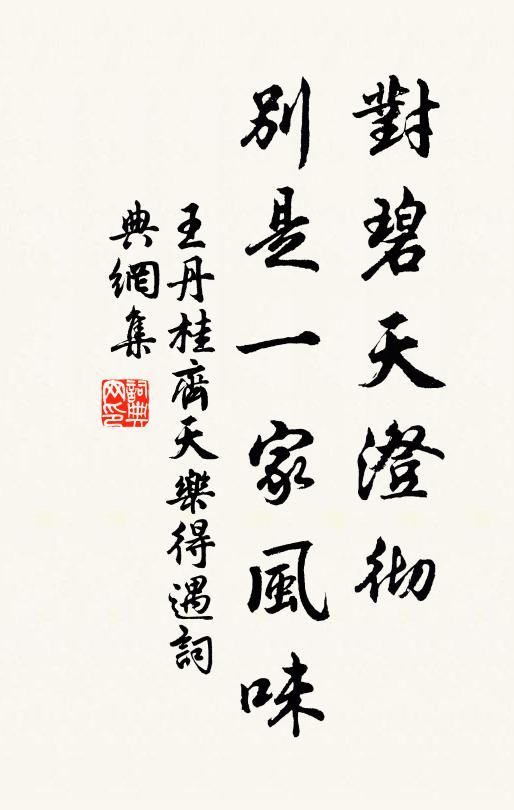 對碧天澄彻
別是一家風味
王丹桂齊天樂得遇詞
典網集
詞典
网印